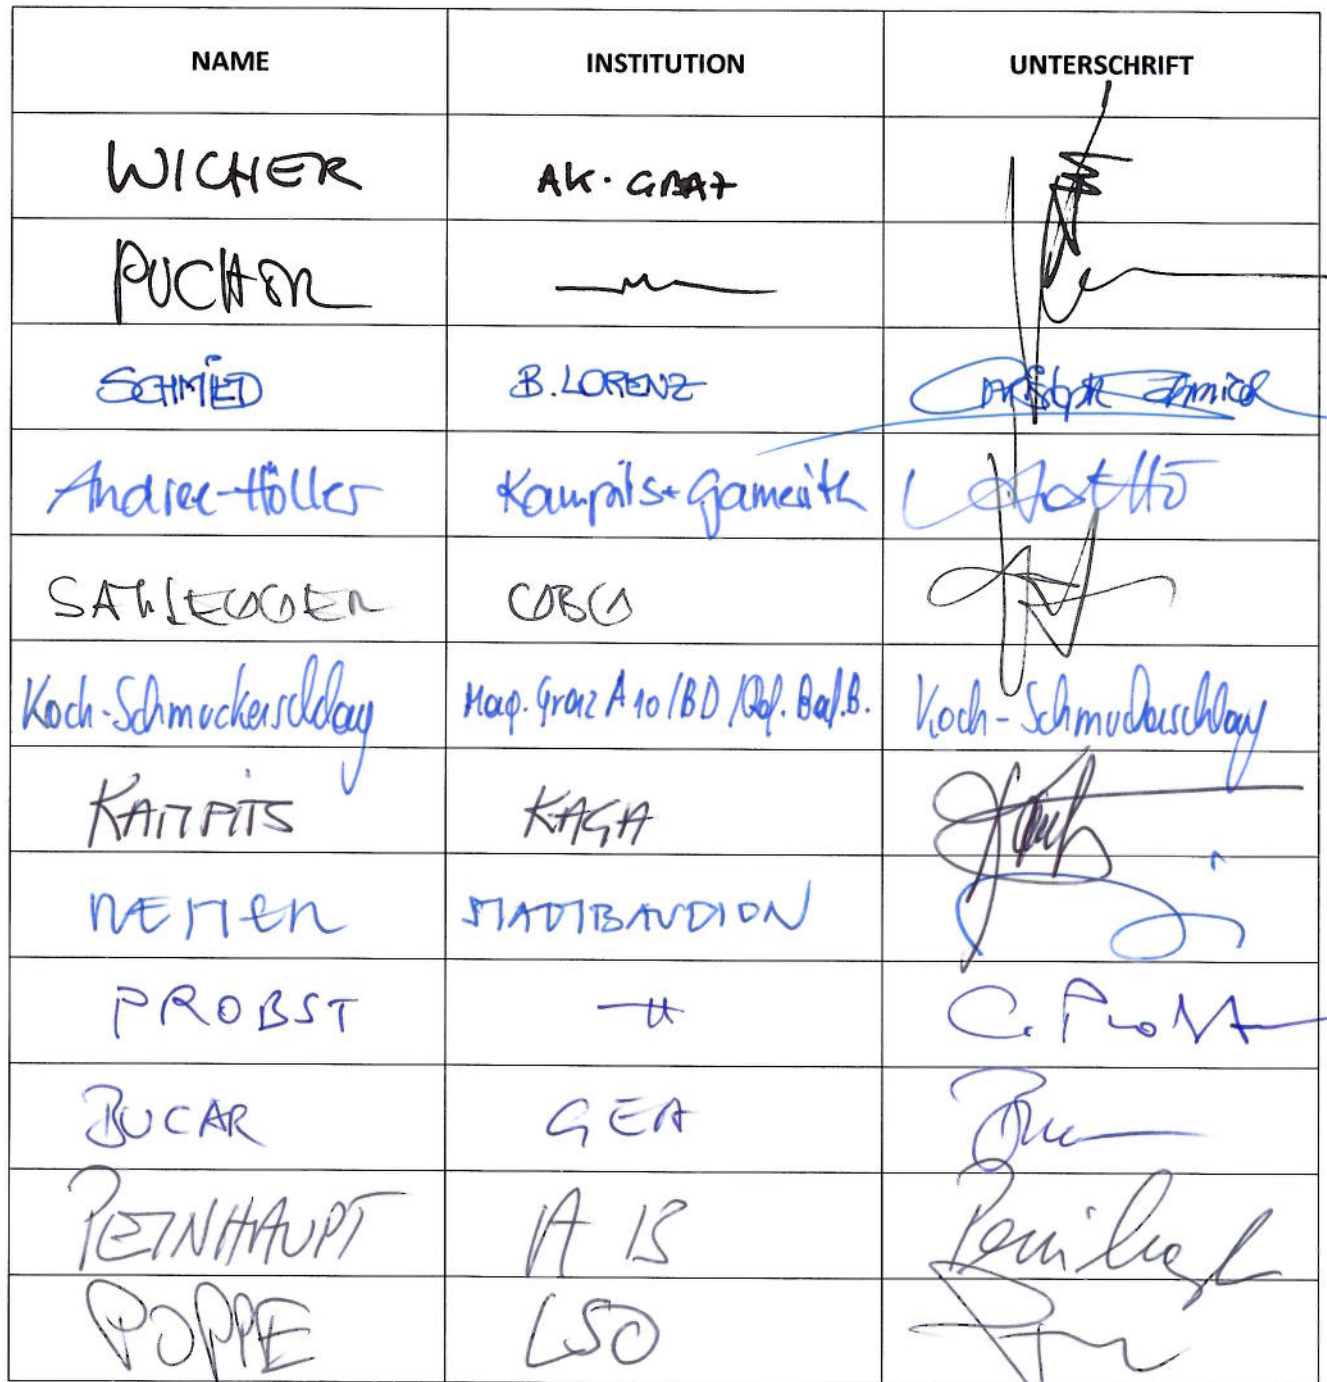 NAME INSTITUTION UNTERSCHRIFT
WICHER AK. GRAZ
PUCHER
SCHMIED B. LORENZ
Andree-Höller Kampits + Gamerith
COBCO
Koch-Schmuckerschlag Mag. Graz A 10 / BD / Koch-Schmuckerschlag
KAMPITS KAGA
STADTBAUDION
PROBST C. Probst
BUCAR GEA
PEINHAUPT A 13 Peinhaupt
POPPE LSO